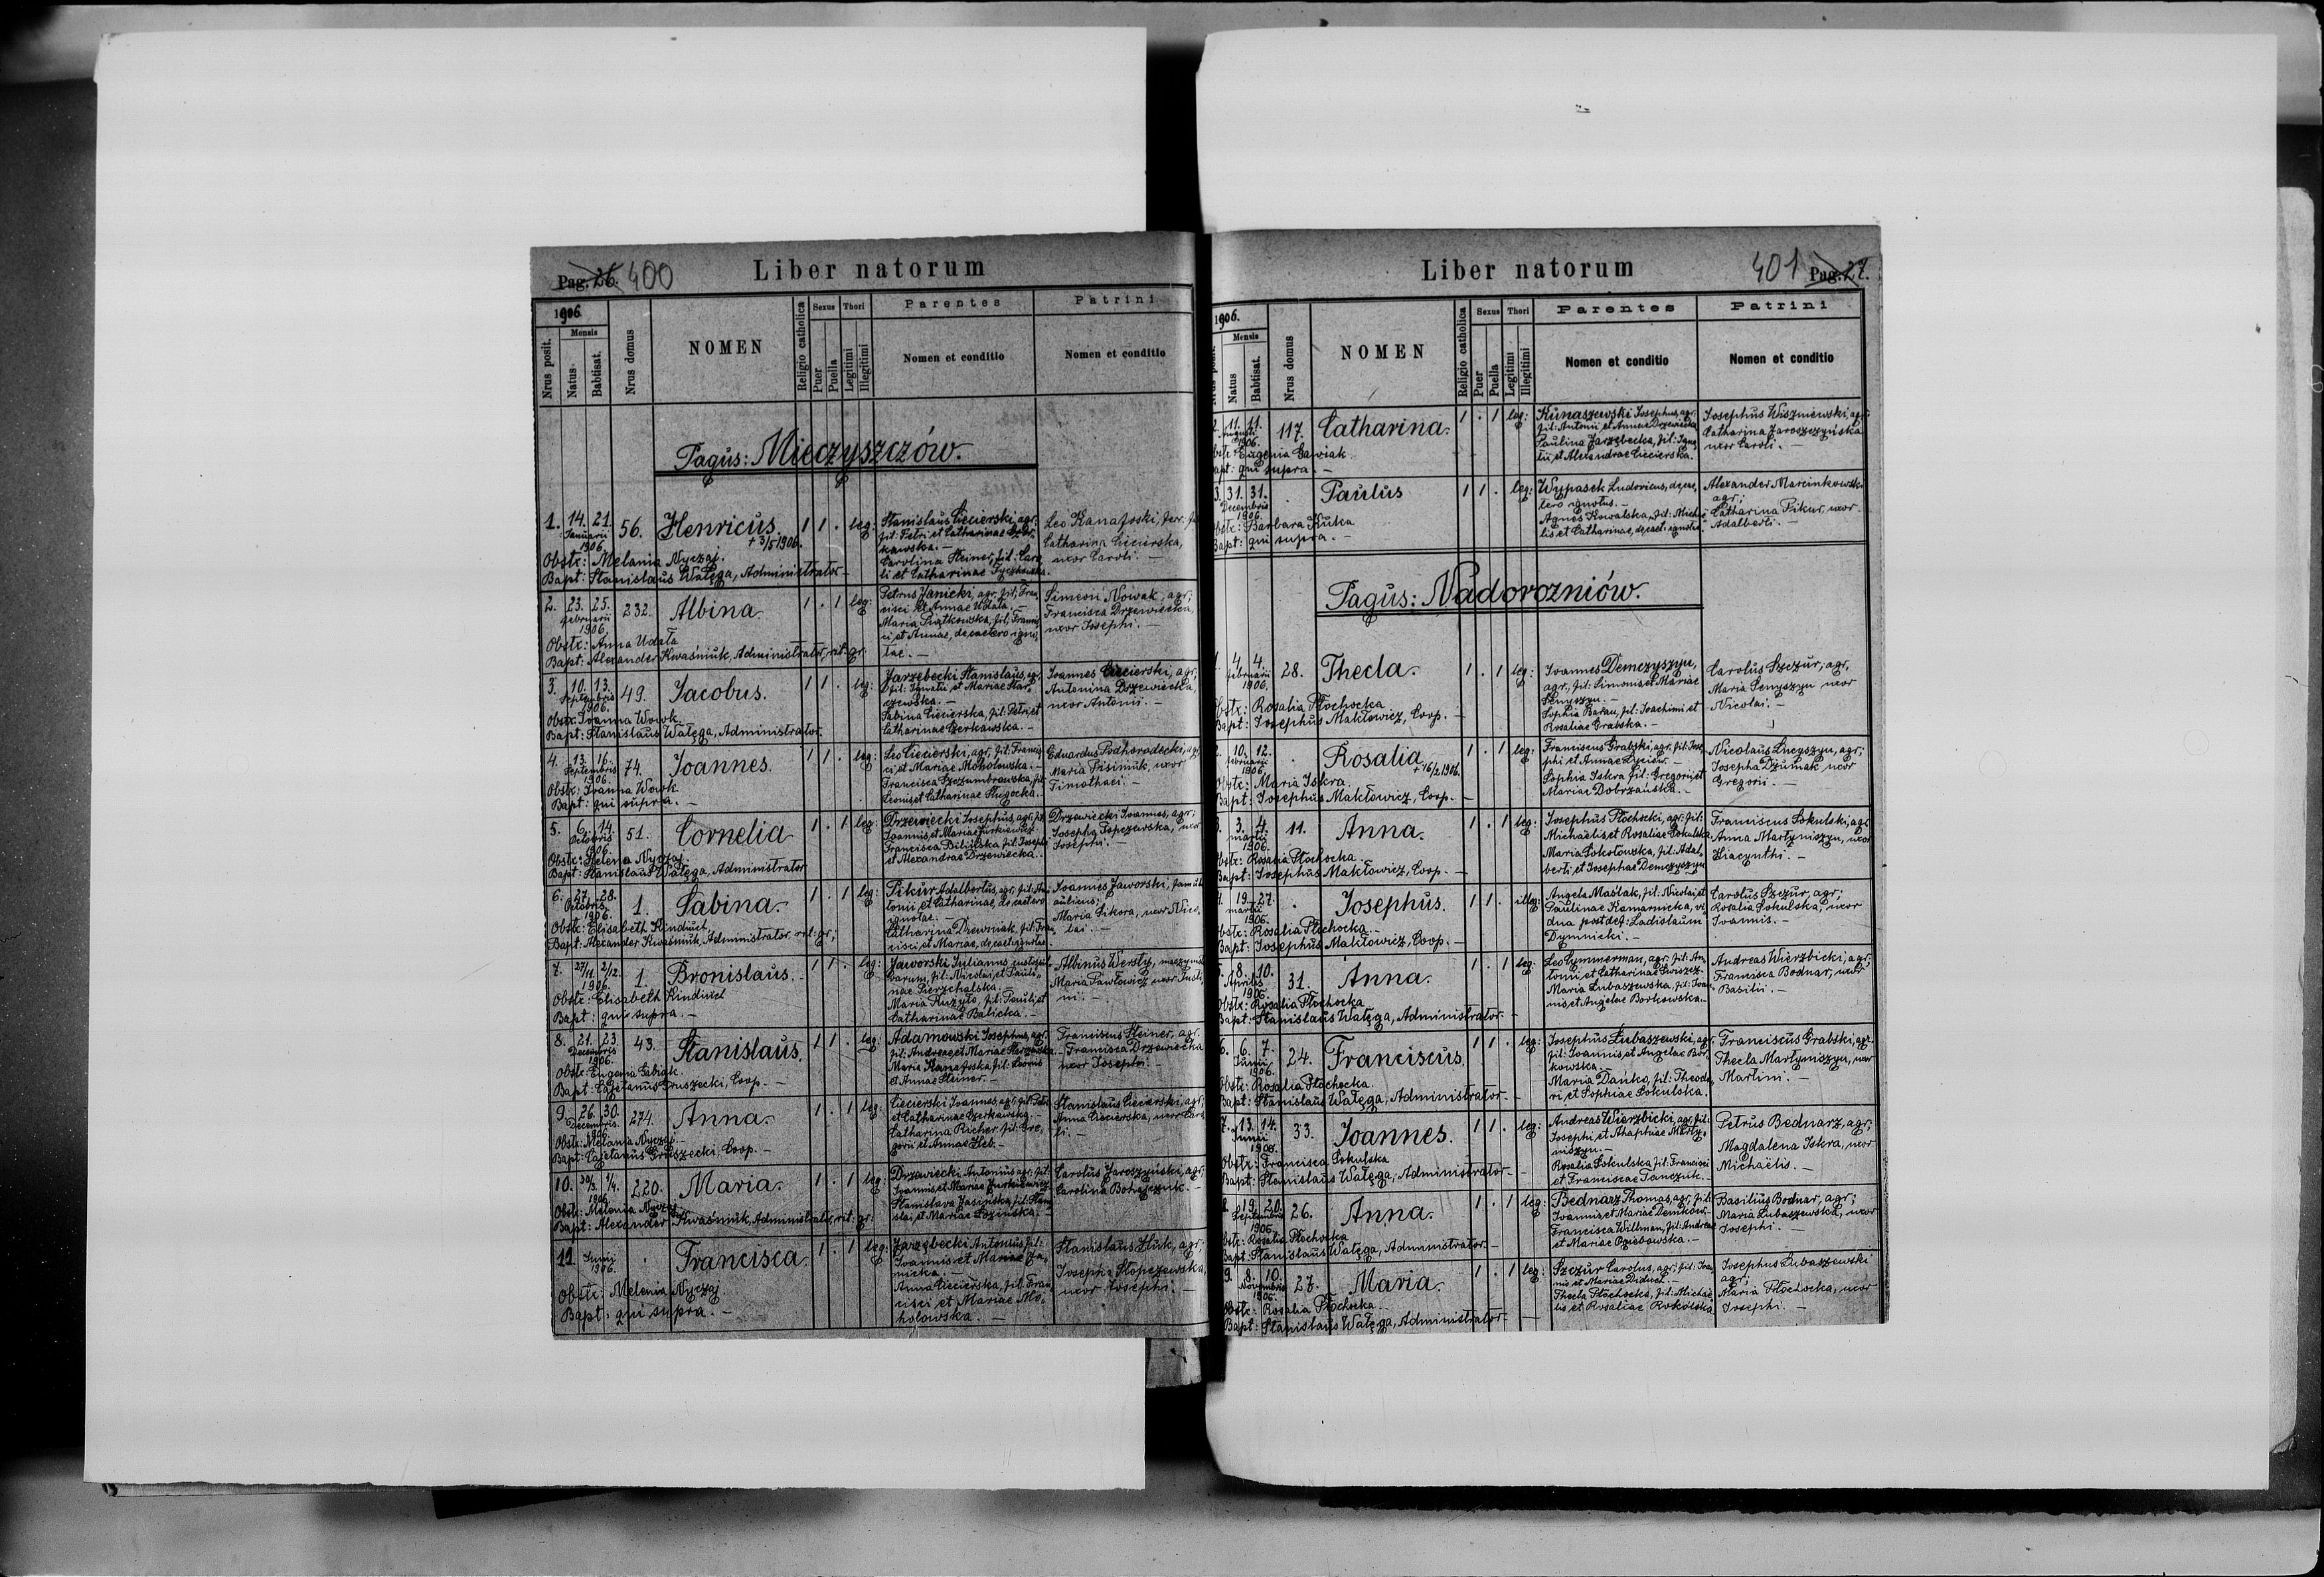 Pag. 26. 400
Liber natorum
1906.
Nrus posit.
Mensis
Natus
Babtisat.
Nrus domus
NOMEN
Religio catholica
Sexus
Puer
Puella
Thori
Legitimi
Illegitimi
Parentes
Nomen et conditio
Patrini
Nomen et conditio
Pagus: Mieczyszczów.
1. 14. 21. Januarii 1906. 56. Henricus. 1 1 . leg:
+ 3/5 1906.
Stanislaus Ciecierski, agr.
fil: Petri et Catharinae
kawska. —
Carolina Steiner, fil: Caro
li et Catharinae
Leo Kanafoski,
Catharina Ciecierska,
uxor Caroli. —
Obstr: Melania Nyczaj.
Bapt: Stanislaus Wałęga, Administrator —
2. 23. 25. februarii 1906. 232. Albina. 1 . 1 leg:
Petrus Janicki, agr. fil: Fran
cisci et Annae Udała. —
Maria Piątkowska, fil: Francis
ci et Annae, de caetero igno
tae. —
Simeon Nowak, agr;
Francisca Drzewiecka,
uxor Josephi. —
Obstr: Anna Udała
Bapt: Alexander Kwaśniuk, Administrator, rit: gr.
3. 10. 13. Septembris 1906. 49. Jacobus. 1 1 . leg:
Jarzębecki Stanislaus, agr,
fil: Ignatii, et Mariae Star
czewska. —
Sabina Ciecierska, fil: Petri et
Catharinae Czerkawska. —
Joannes Ciecierski, agr,
Antonina Drzewiecka,
uxor Antonii. —
Obstr: Joanna Wowk
Bapt: Stanislaus Wałęga, Administrator
4. 13. 16. Septembris 1906. 74. Joannes. 1 1 . leg:
Leo Ciecierski, agr, fil: Francis
ci, et Mariae Moholowska. —
Francisca Szczumbrowska, fil:
Leonis et Catharinae Sługocka.
Eduardus Podhorodecki, agr
Maria Pisimiuk, uxor
Timothaei. —
Obstr: Joanna Wowk
Bapt: qui supra. —
5. 6. 14. Octobris 1906. 51. Cornelia 1 . 1 leg:
Drzewiecki Josephus, agr, fil:
Joannis, et Mariae Jurkiewicz
Francisca Bilińska fil: Josephi
et Alexandrae Drzewiecka.
Drzewiecki Joannes, agr;
Josepha Topczewska, uxor
Josephi. —
Obstr: Helena Nyczaj
Bapt: Stanislaus Wałęga, Administrator
6. 27. 28. Octobris 1906. 1. Sabina. 1 . 1 leg:
Pikur Adalbertus, agr, fil: An
tonii, et Catharinae, de caetero
ignotae. —
Catharina Drewniak, fil: Fran
cisci, et Mariae, de caet: ignotae.
Joannes Jaworski, famul:
aulicus;
Maria Sikora, uxor Nico
lai. —
Obstr: Elisabeth Kinduch
Bapt: Alexander Kwaśniuk, Administrator, rit: gr;
7. 27/11. 2/12. 1906. 1. Bronislaus. 1 1 . leg:
Jaworski Julianus
fil: Nicolai, et Pauli
nae Pierzchalska. —
Maria Ruzyło, fil: Pauli, et
Catharinae Balicka. —
Albinus Wersty,
Maria Pawłowicz uxor Justi
ni. —
Obstr: Elisabeth Kinduch
Bapt: qui supra. —
8. 21. 23. Decembris 1906. 43. Stanislaus. 1 1 . leg:
Adamowski Josephus, agr,
fil: Andreae, et Mariae
Maria Kanafoska, fil: Leonis
et Annae Steiner. —
Franciscus Steiner, agr.
Francisca Drzewiecka
uxor Josephi. —
Obstr: Eugenia Gabiak.
Bapt: Cajetanus Gruszecki, Coop. —
9. 26. 30. Decembris 1906. 274. Anna. 1 . 1 leg:
Ciecierski Joannes, agr, fil: Petri
et Catharinae Czerkawska. —
Catharina Richer, fil: Gre
gorii et Annae Heb. —
Stanislaus Ciecierski, agr,
Anna Ciecierska, uxor Caro
li. —
Obstr: Melania Nyczaj. —
Bapt: Cajetanus Gruszecki, Coop. —
10. 30/3. 1/4. 1906. 220. Maria. 1 . 1 leg:
Drzewiecki Antonius, agr, fil:
Joannis, et Mariae Jurkiewicz
Stanislava Jasińska, fil: Stani
slai, et Mariae Łozińska. —
Carolus Jaroszyński, agr,
Carolina Bohaczuk. —
Obstr: Melania Nyczaj
Bapt: Alexander Kwaśniuk, Administrator, rit: gr:
11. Junii 1906. . Francisca 1 . 1 leg:
Jarzębecki Antonius, fil:
Joannis et Mariae Ja
nicka. —
Anna Ciecierska, fil: Fran
cisci et Mariae Mo
holowska. —
Stanislaus Huk, agr,
Josepha Stopczewska,
uxor Josephi. —
Obstr: Melania Nyczaj
Bapt: qui supra. —
Liber natorum
401 Pag. 27.
1906.
Mensis
Natus
Babtisat.
Nrus domus
NOMEN
Religio catholica
Sexus
Puer
Puella
Thori
Legitimi
Illegitimi
Parentes
Nomen et conditio
Patrini
Nomen et conditio
2. 11. 21. Augusti 1906. 117. Catharina. 1 . 1 leg:
Kunaszewski Josephus, agr.
fil: Antonii et Annae Drzewiecka
Paulina Jarzębecka, fil: Igna
tii, et Alexandrae Ciecierska.
Josephus Wiszniewski, agr;
Catharina Jaroszczyńska
uxor Caroli. —
Obstr: Eugenia Gawiak
Bapt: qui supra. —
3. 31. 31. Decembris 1906. . Paulus 1 1 . leg:
Wypasek Ludovicus, de cae
tero ignotus. —
Agnes Kowalska, fil: Micha
lis et Catharinae, de caet: ignotae.
Alexander Marcinkowski
agr;
Catharina Pikur, uxor
Adalberti. —
Obstr: Barbara Kuka
Bapt: qui supra. —
Pagus: Nadorozniów.
1. 4. 4. februarii 1906. 28. Thecla. 1 . 1 leg:
Joannes Demczyszyn,
agr., fil: Simonis et Mariae
Senyszyn. —
Sophia Baran, fil: Joachimi et
Rosaliae Grabska. —
Carolus Szczur, agr,
Maria Senyszyn uxor
Nicolai. —
Obstr: Rosalia Płochocka
Bapt: Josephus Makłowicz, Coop. —
2. 10. 12. februarii 1906. . Rosalia 1 . 1 leg:
+ 16/2 1906.
Franciscus Grabski, agr. fil: Jose
phi et Annae Dyciów. —
Sophia Iskra fil: Gregorii, et
Mariae Dobrzańska. —
Nicolaus Lucyszyn, agr;
Josepha Dziumak uxor
Gregorii. —
Obstr: Maria Iskra
Bapt: Josephus Makłowicz, Coop. —
3. 3. 4. martii 1906. 11. Anna. 1 . 1 leg:
Josephus Płochocki, agr. fil:
Michaelis, et Rosaliae Sokulska
Maria Sokołowska, fil: Adal
berti, et Josephae Demczyszyn
Franciscus Sokulski, agr
Anna Martyniszyn, uxor
Hiacynthi. —
Obstr: Rosalia Płochocka
Bapt: Josephus Makłowicz, Coop. —
4. 19. 27. martii 1906. . Josephus. 1 1 . illeg:
Angela Maślak, fil: Nicolai, et
Paulinae Kamarnicka, vi
dua post def: Ladislaum
Dymnicki. —
Carolus Szczur, agr;
Rosalia Sokulska, uxor
Joannis. —
Obstr: Rosalia Płochocka
Bapt: Josephus Makłowicz, Coop. —
5. 8. 10. Aprilis 1906. 31. Anna. 1 . 1 leg:
Leo Cymmerman, agr. fil: An
tonii et Catharinae Swiszcz
Maria Lubaszewska, fil: Joan
nis, et Angelae Borkowska. —
Andreas Wierzbicki, agr;
Francisca Bodnar, uxor
Basilii. —
Obstr: Rosalia Płochocka
Bapt: Stanislaus Wałęga, Administrator —
6. 6. 7. Junii 1906. 24. Franciscus. 1 1 . leg:
Josephus Lubaszewski, agr.
fil: Joannis, et Angelae Bor
kowska. —
Maria Dańko, fil: Theodo
ri, et Sophiae Sokulska.
Franciscus Grabski, agr.
Thecla Martyniszyn, uxor
Martini. —
Obstr: Rosalia Płochocka.
Bapt: Stanislaus Wałęga, Administrator —
7. 13. 14. Junii 1906. 33. Joannes. 1 1 . leg:
Andreas Wierzbicki, agr, fil:
Josephi, et Ahaphiae Marty
niszyn. —
Rosalia Sokulska, fil: Francisci
et Franciscae Tanczuk. —
Petrus Bednarz, agr;
Magdalena Iskra, uxor
Michaëlis. —
Obstr: Francisca Sokulska
Bapt: Stanislaus Wałęga, Administrator —
8. 19. 20. Septembris 1906. 26. Anna. 1 . 1 leg:
Bednarz Thomas, agr, fil:
Joannis, et Mariae Demków.
Francisca Willman, fil: Andreae
et Mariae Dziebowska. —
Basilius Bodnar, agr;
Maria Lubaszewska, uxor
Josephi. —
Obstr: Rosalia Płochocka
Bapt: Stanislaus Wałęga, Administrator —
9. 8. 10. Novembris 1906. 27. Maria. 1 . 1 leg:
Szczur Carolus, agr, fil: Joan
nis et Mariae Diduch. —
Thecla Płochocka, fil: Michae
lis et Rosaliae Rokólska
Josephus Lubaszewski
agr;
Maria Płochocka, uxor
Josephi. —
Obstr: Rosalia Płochocka. —
Bapt: Stanislaus Wałęga, Administrator —